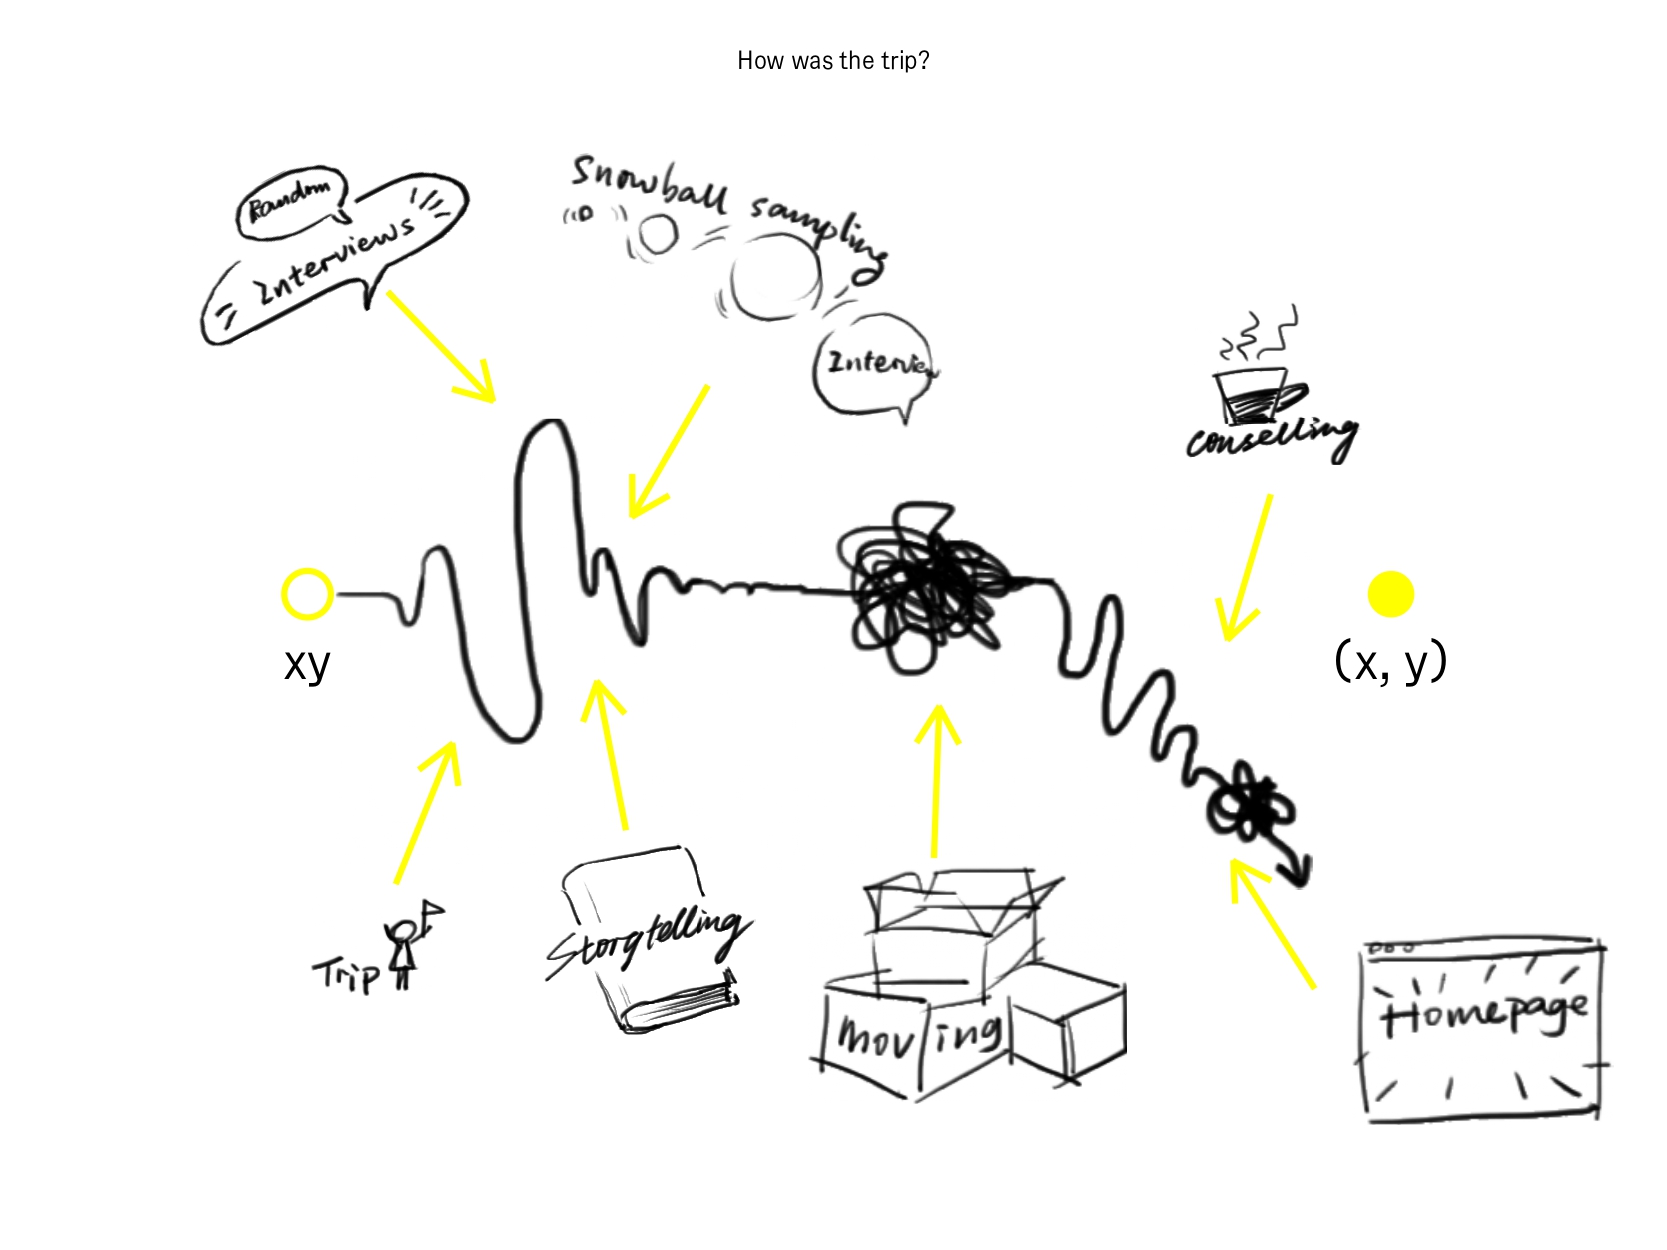 How was the trip?
Random
Interviews
Snowball sampling
Interview
conselling
xy
(x, y)
Trip
Storytelling
moving
Homepage